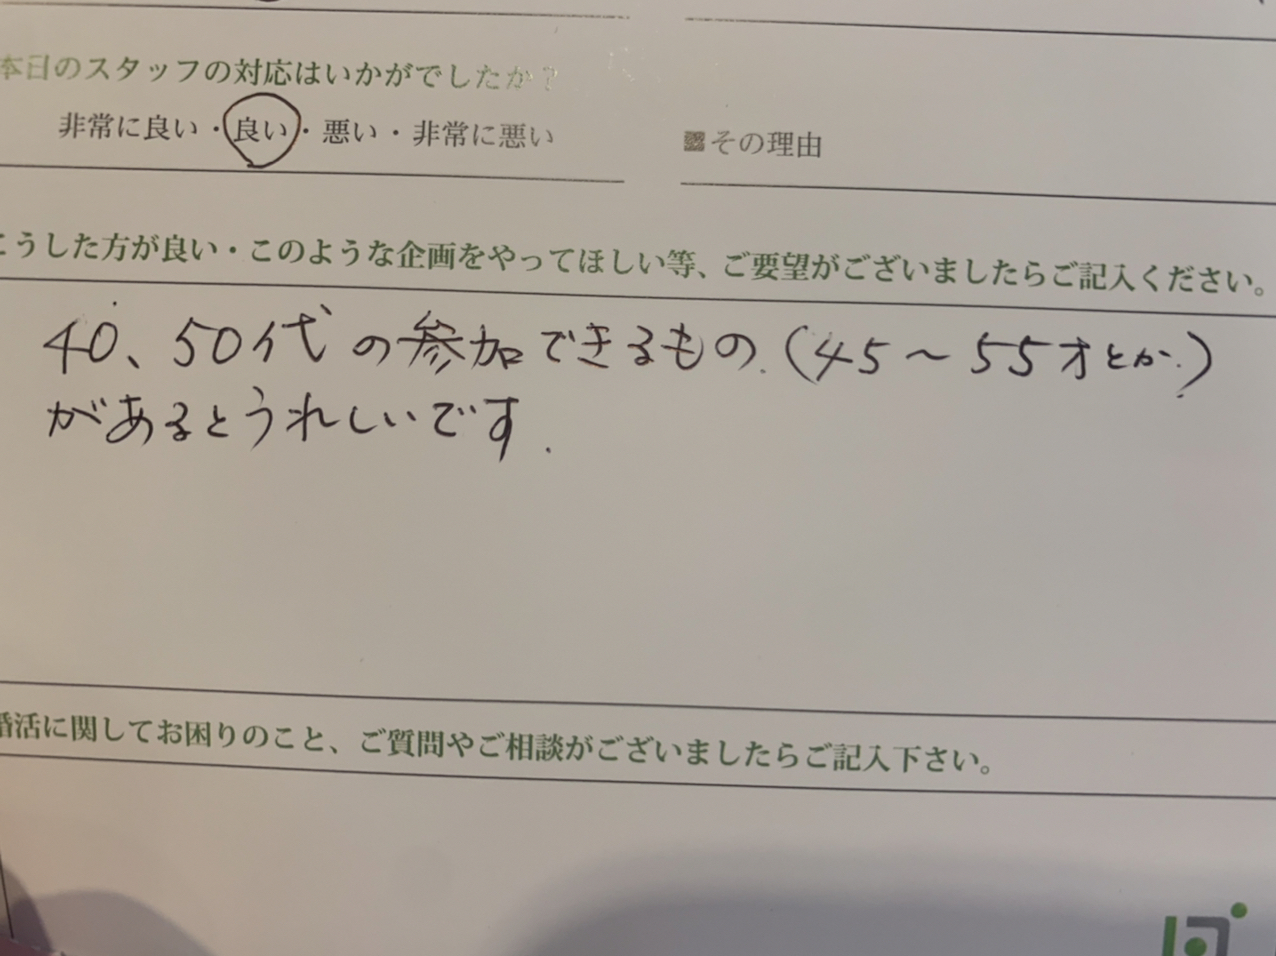 本日のスタッフの対応はいかがでしたか?
非常に良い・良い・悪い・非常に悪い
■その理由
こうした方が良い・このような企画をやってほしい等、ご要望がございましたらご記入ください。
40、50代の参加できるもの.(45～55才とか.)
があるとうれしいです.
婚活に関してお困りのこと、ご質問やご相談がございましたらご記入下さい。